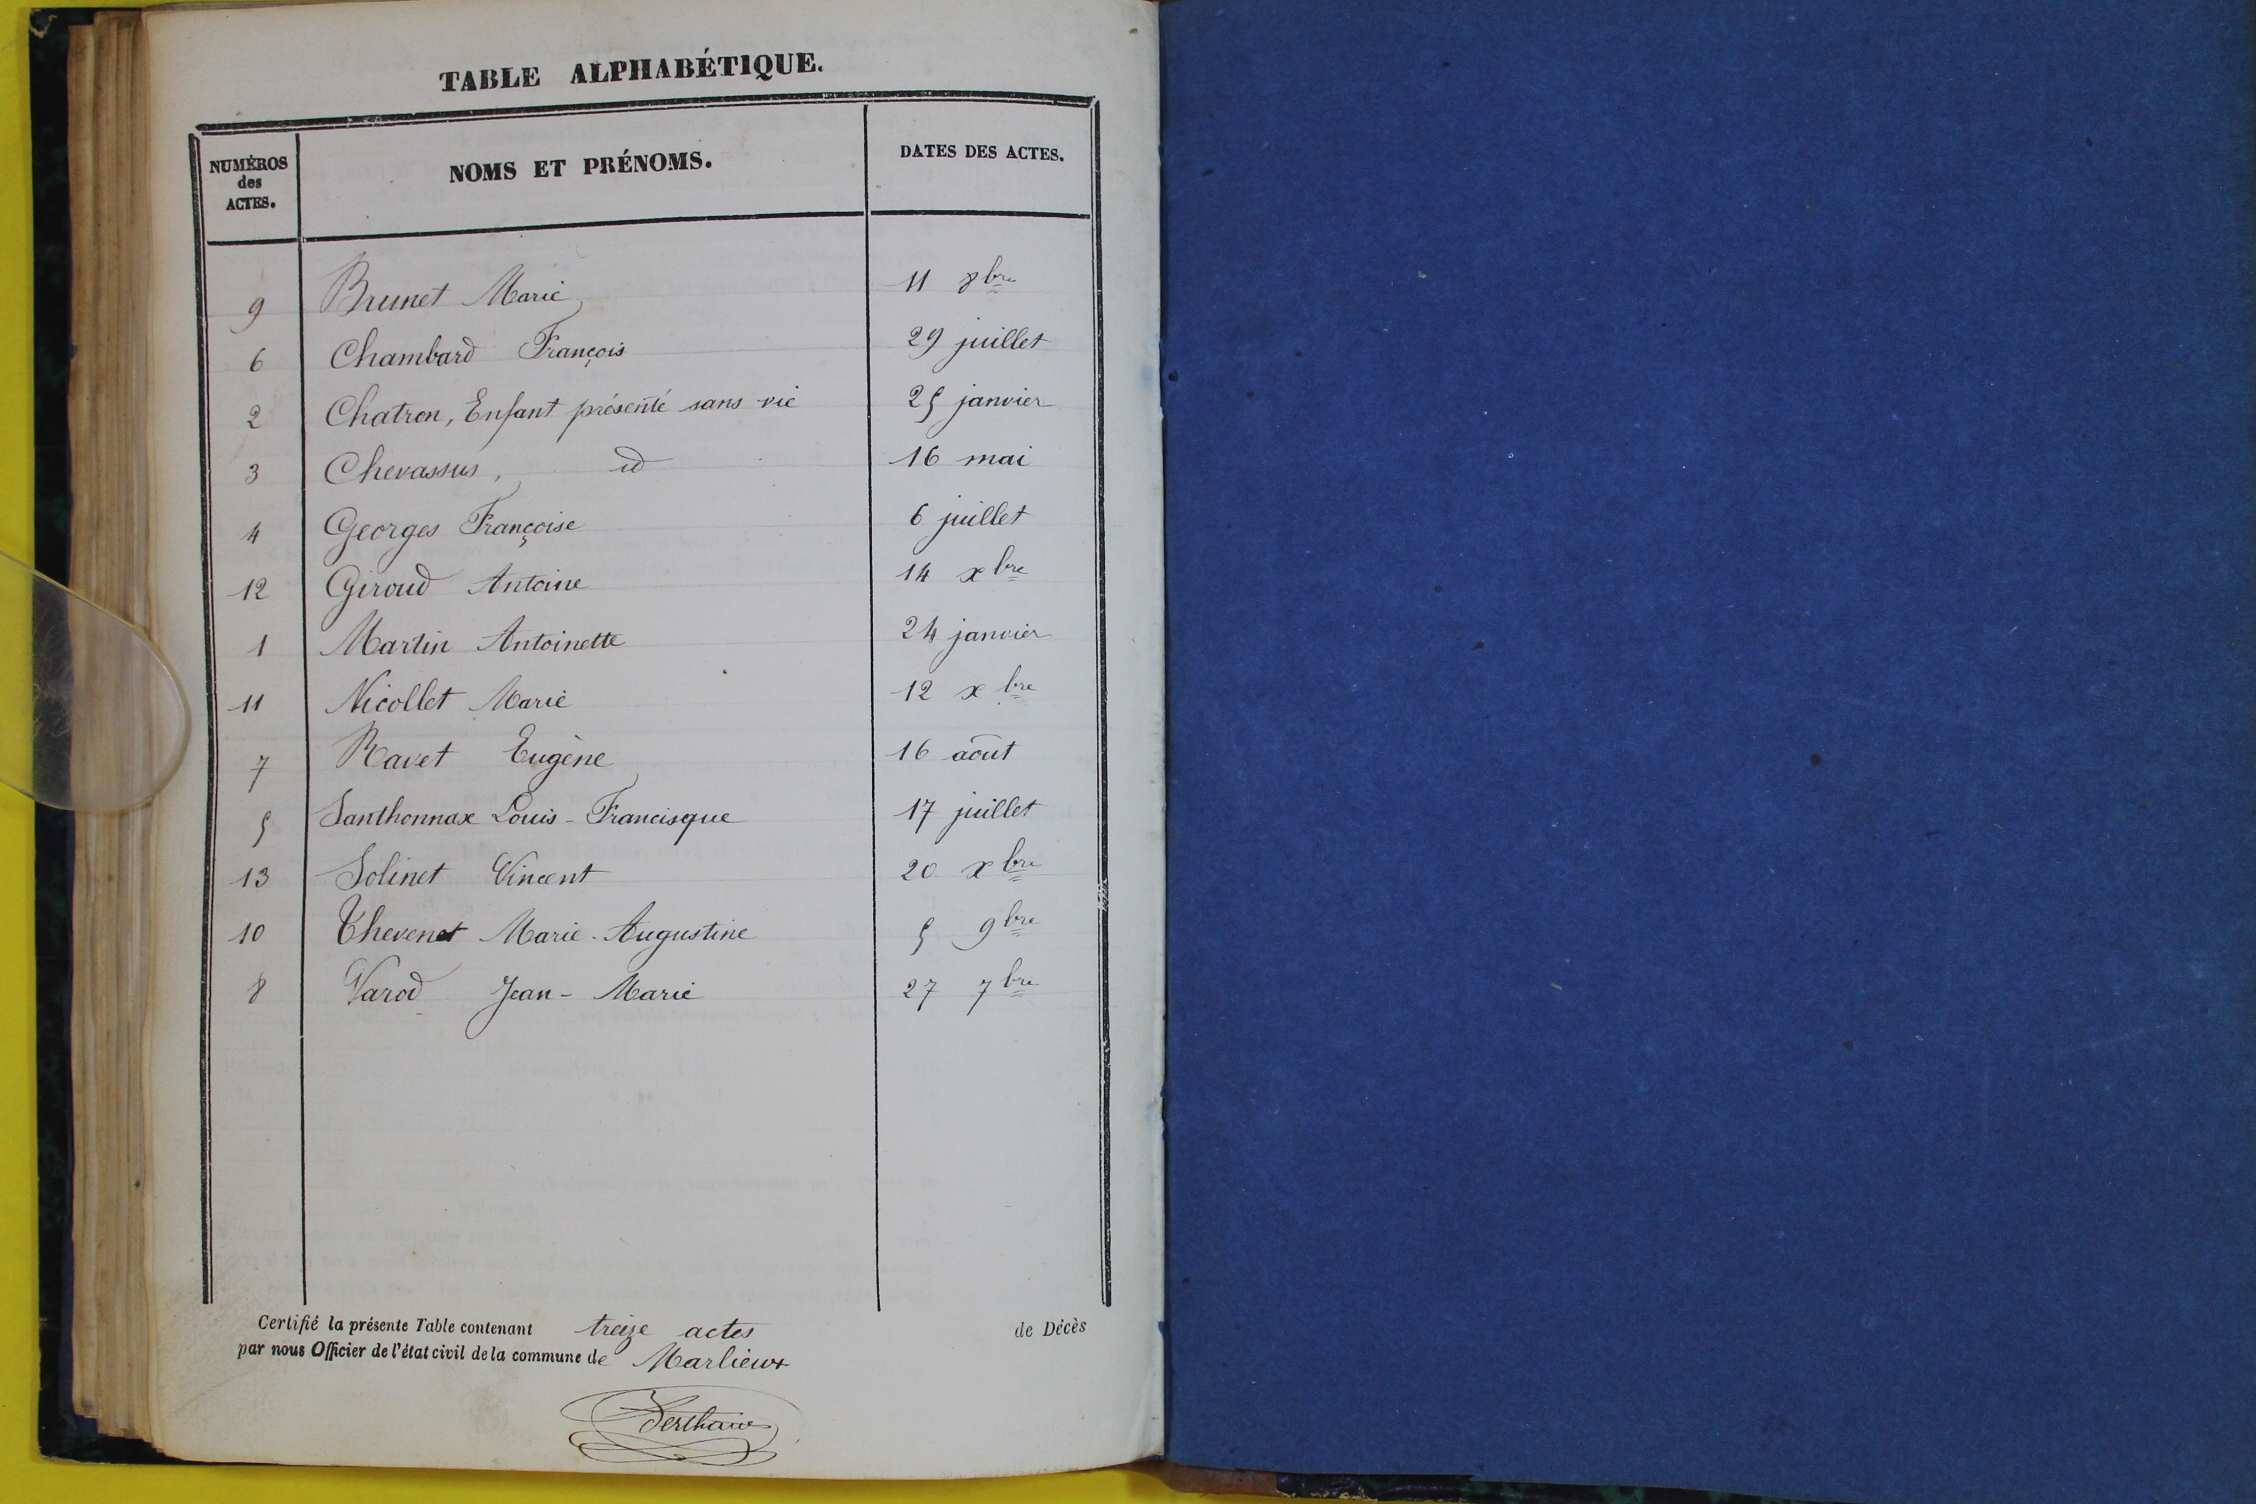 TABLE ALPHABÉTIQUE.
NUMÉROS des ACTES. NOMS ET PRÉNOMS. DATES DES ACTES.
9 Brunet Marie 11 8bre
6 Chambard François 29 juillet
2 Chatron, Enfant présenté sans vie 25 janvier
3 Chevassus, id 16 mai
4 Georges Françoise 6 juillet
12 Giroud Antoine 14 xbre
1 Martin Antoinette 24 janvier
11 Nicollet Marie 12 xbre
7 Ravet Eugène 16 août
5 Santhonnax Louis-Francisque 17 juillet
13 Solinet Vincent 20 xbre
10 Thevenet Marie-Augustine 5 9bre
8 Varod Jean-Marie 27 7bre
Certifié la présente Table contenant treize actes de Décès
par nous Officier de l'état civil de la commune de Marlieux